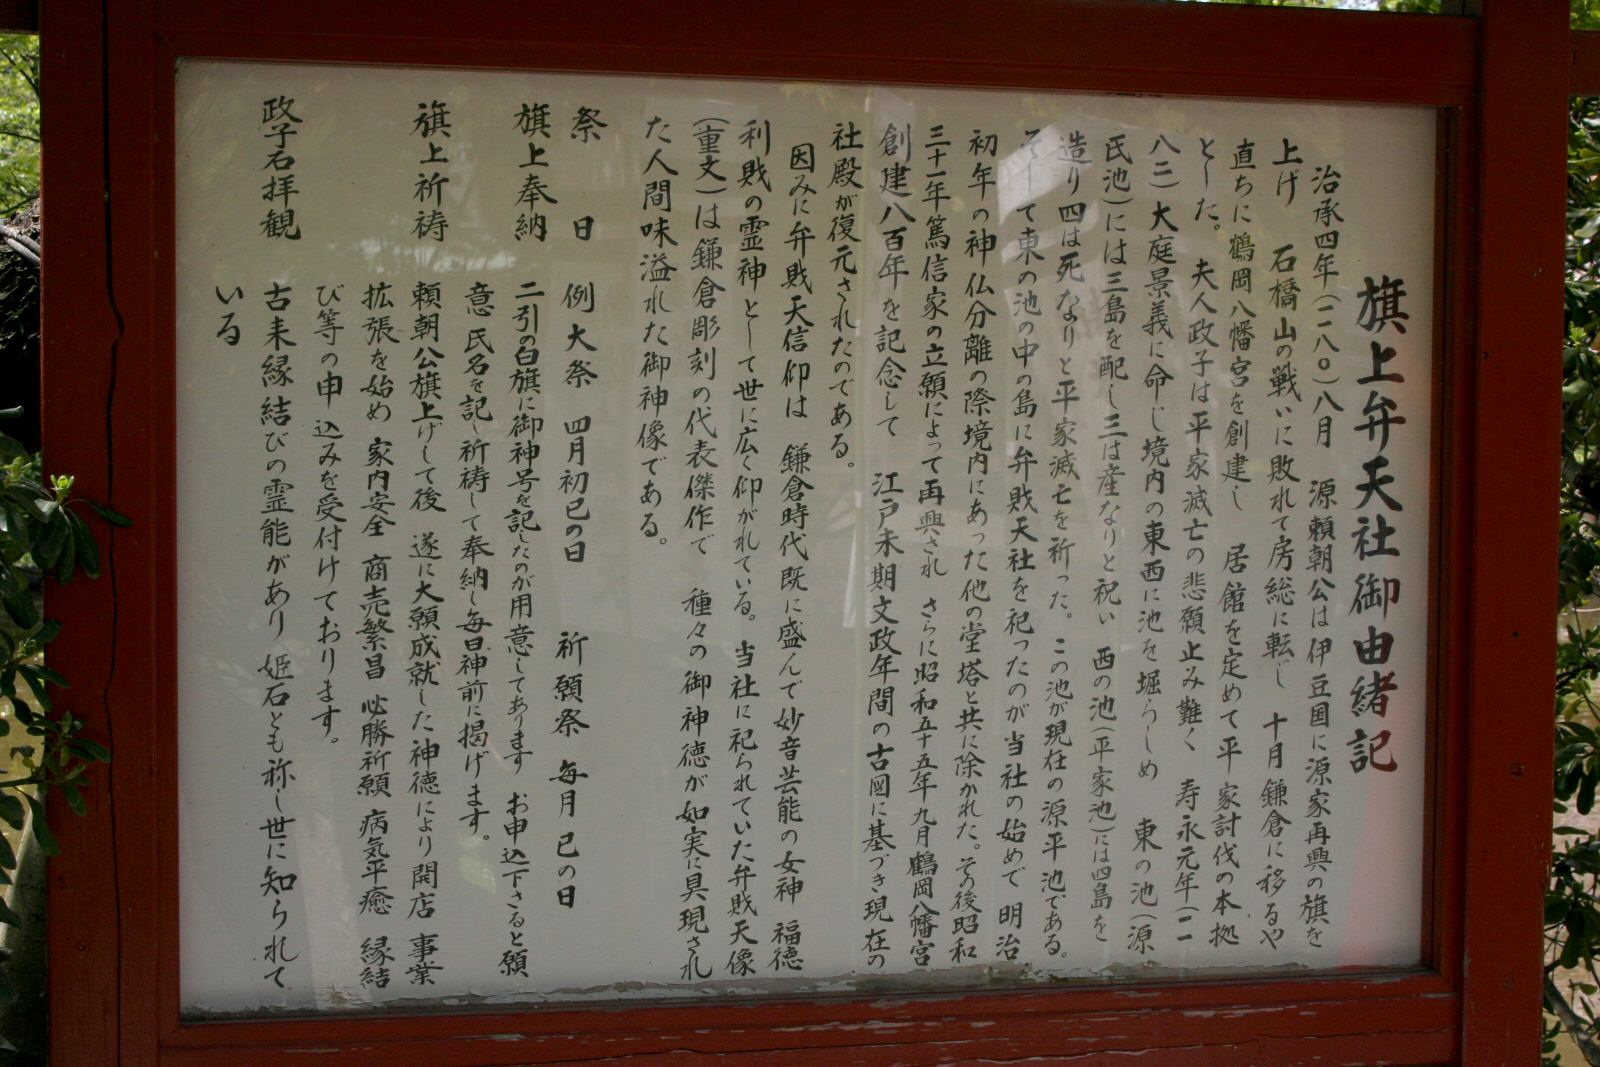 旗上弁天社御由緒記
治承四年(一一八〇)八月 源頼朝公は伊豆国に源家再興の旗を
上げ 石橋山の戦いに敗れて房総に転じ 十月鎌倉に移るや
直ちに鶴岡八幡宮を創建し 居館を定めて平家討伐の本拠
とした。 夫人政子は平家滅亡の悲願止み難く 寿永元年(一一
八二)大庭景義に命じ境内の東西に池を堀らしめ 東の池(源
氏池)には三島を配し三は産なりと祝い 西の池(平家池)には四島を
造り四は死なりと平家滅亡を祈った。この池が現在の源平池である。
そして東の池の中の島に弁財天社を祀ったのが当社の始めで 明治
初年の神仏分離の際境内にあった他の堂塔と共に除かれた。その後昭和
三十一年篤信家の立願によって再興され さらに昭和五十五年九月鶴岡八幡宮
創建八百年を記念して 江戸末期文政年間の古図に基づき現在の
社殿が復元されたのである。
因みに弁財天信仰は 鎌倉時代既に盛んで妙音芸能の女神 福徳
利財の霊神として世に広く仰がれている。当社に祀られていた弁財天像
(重文)は鎌倉彫刻の代表傑作で 種々の御神徳が如実に具現され
た人間味溢れた御神像である。
祭日 例大祭 四月初巳の日 祈願祭 毎月巳の日
旗上奉納 二引の白旗に御神号を記したのが用意してあります お申込下さると願
意 氏名を記し祈祷して奉納し毎日神前に掲げます。
旗上祈祷 頼朝公旗上げして後 遂に大願成就した神徳により開店 事業
拡張を始め 家内安全 商売繁昌 必勝祈願 病気平癒 縁結
び等の申込みを受付けております。
政子石拝観 古来縁結びの霊能があり 姫石とも称し世に知られて
いる